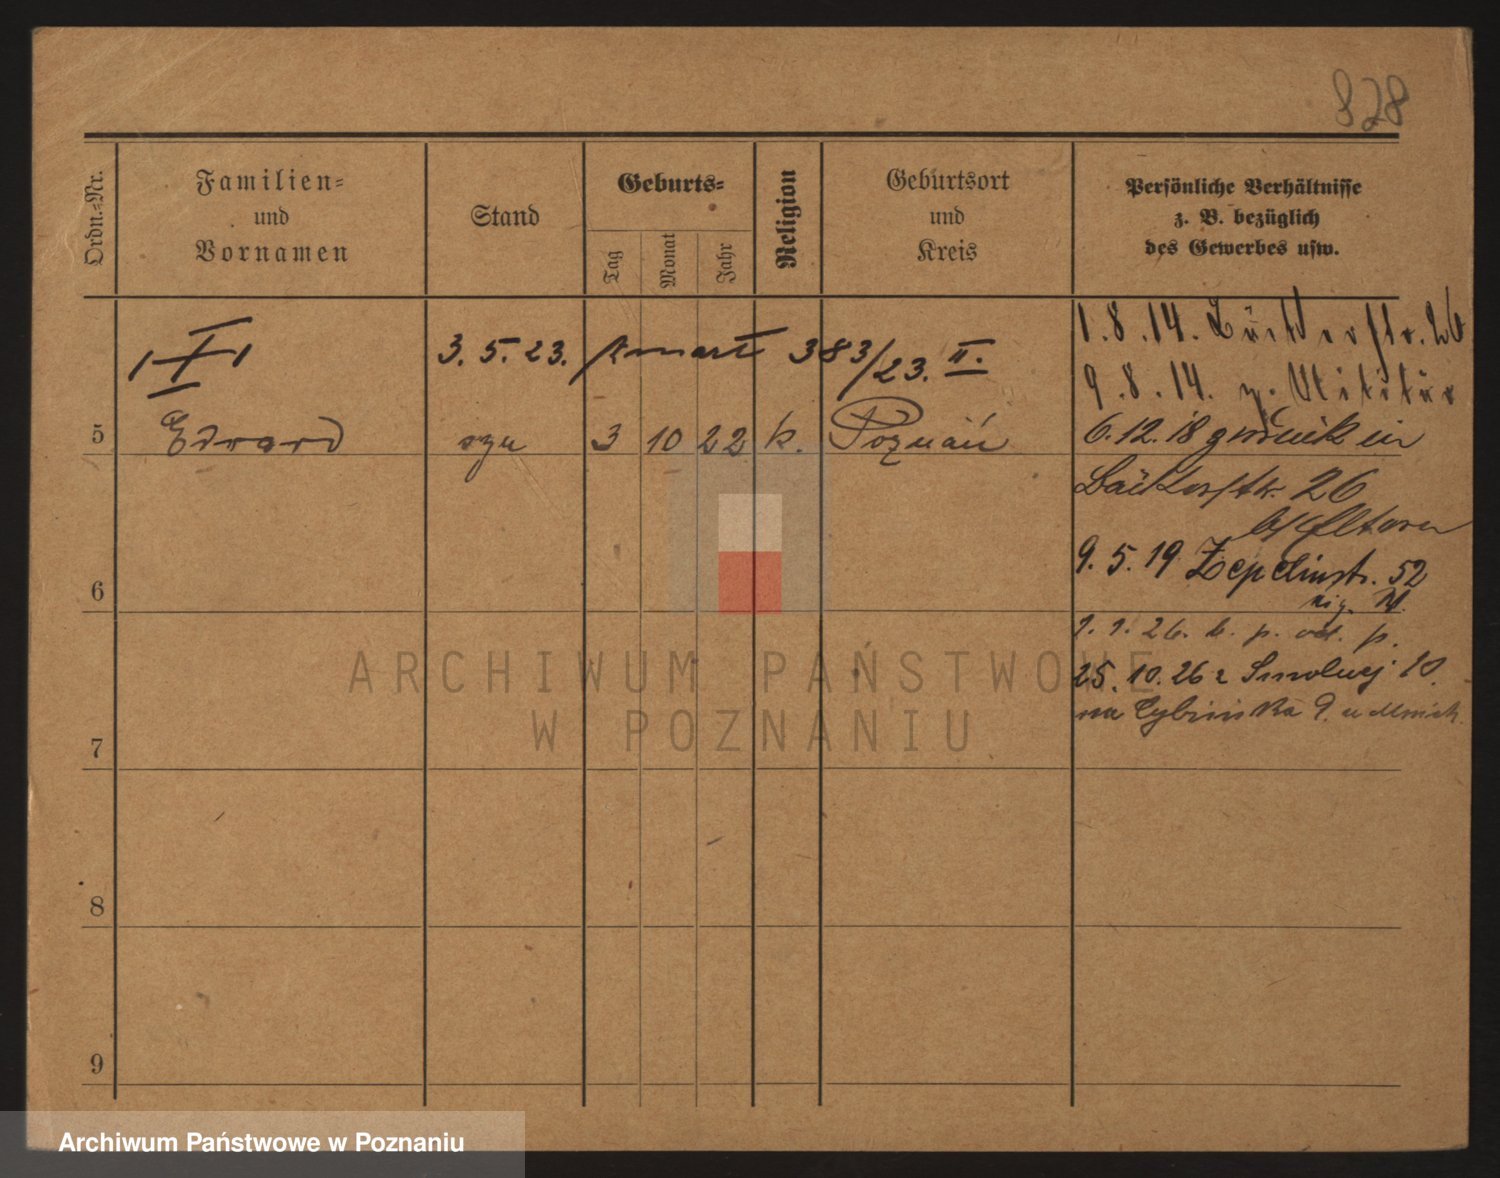 828
Ordn.-Nr.
Familien-
und
Vornamen
Stand
Geburts-
Tag
Monat
Jahr
Religion
Geburtsort
und
Kreis
Persönliche Verhältnisse
z. B. bezüglich
des Gewerbes usw.
3. 5. 23. 383/23. II.
5 Edward syn 3 10 22 k. Poznań
1. 8. 14. 26
9. 8. 14. z. Militär
6. 12. 18
26
b/Eltern
9. 5. 19 Zepelinstr. 52
6
1. 1. 26. b. p. od. p.
25. 10. 26 z 10.
na Cybińska 9.
7
8
9
ARCHIWUM PAŃSTWOWE
W POZNANIU
Archiwum Państwowe w Poznaniu